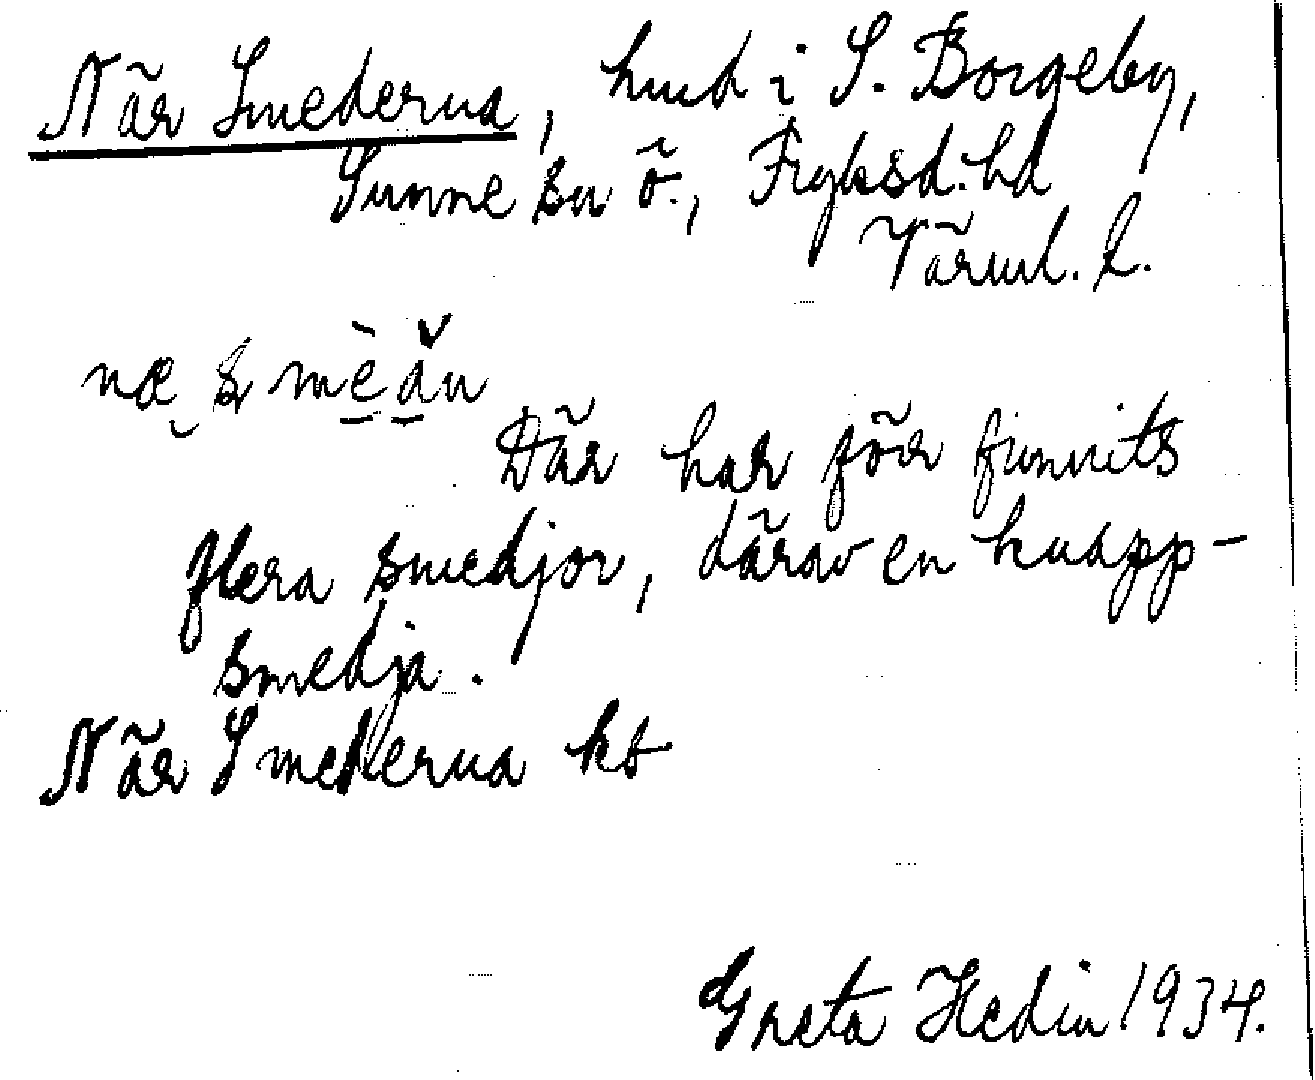 När Smederna, hmd i S. Borgeby,
Sunne sn ö., Fryksd. hd
Värml. l.
næ s mèăn
Där har förr funnits
flera smedjor, därav en knapp-
smedja.
När Smederna kb
Greta Hedin 1934.